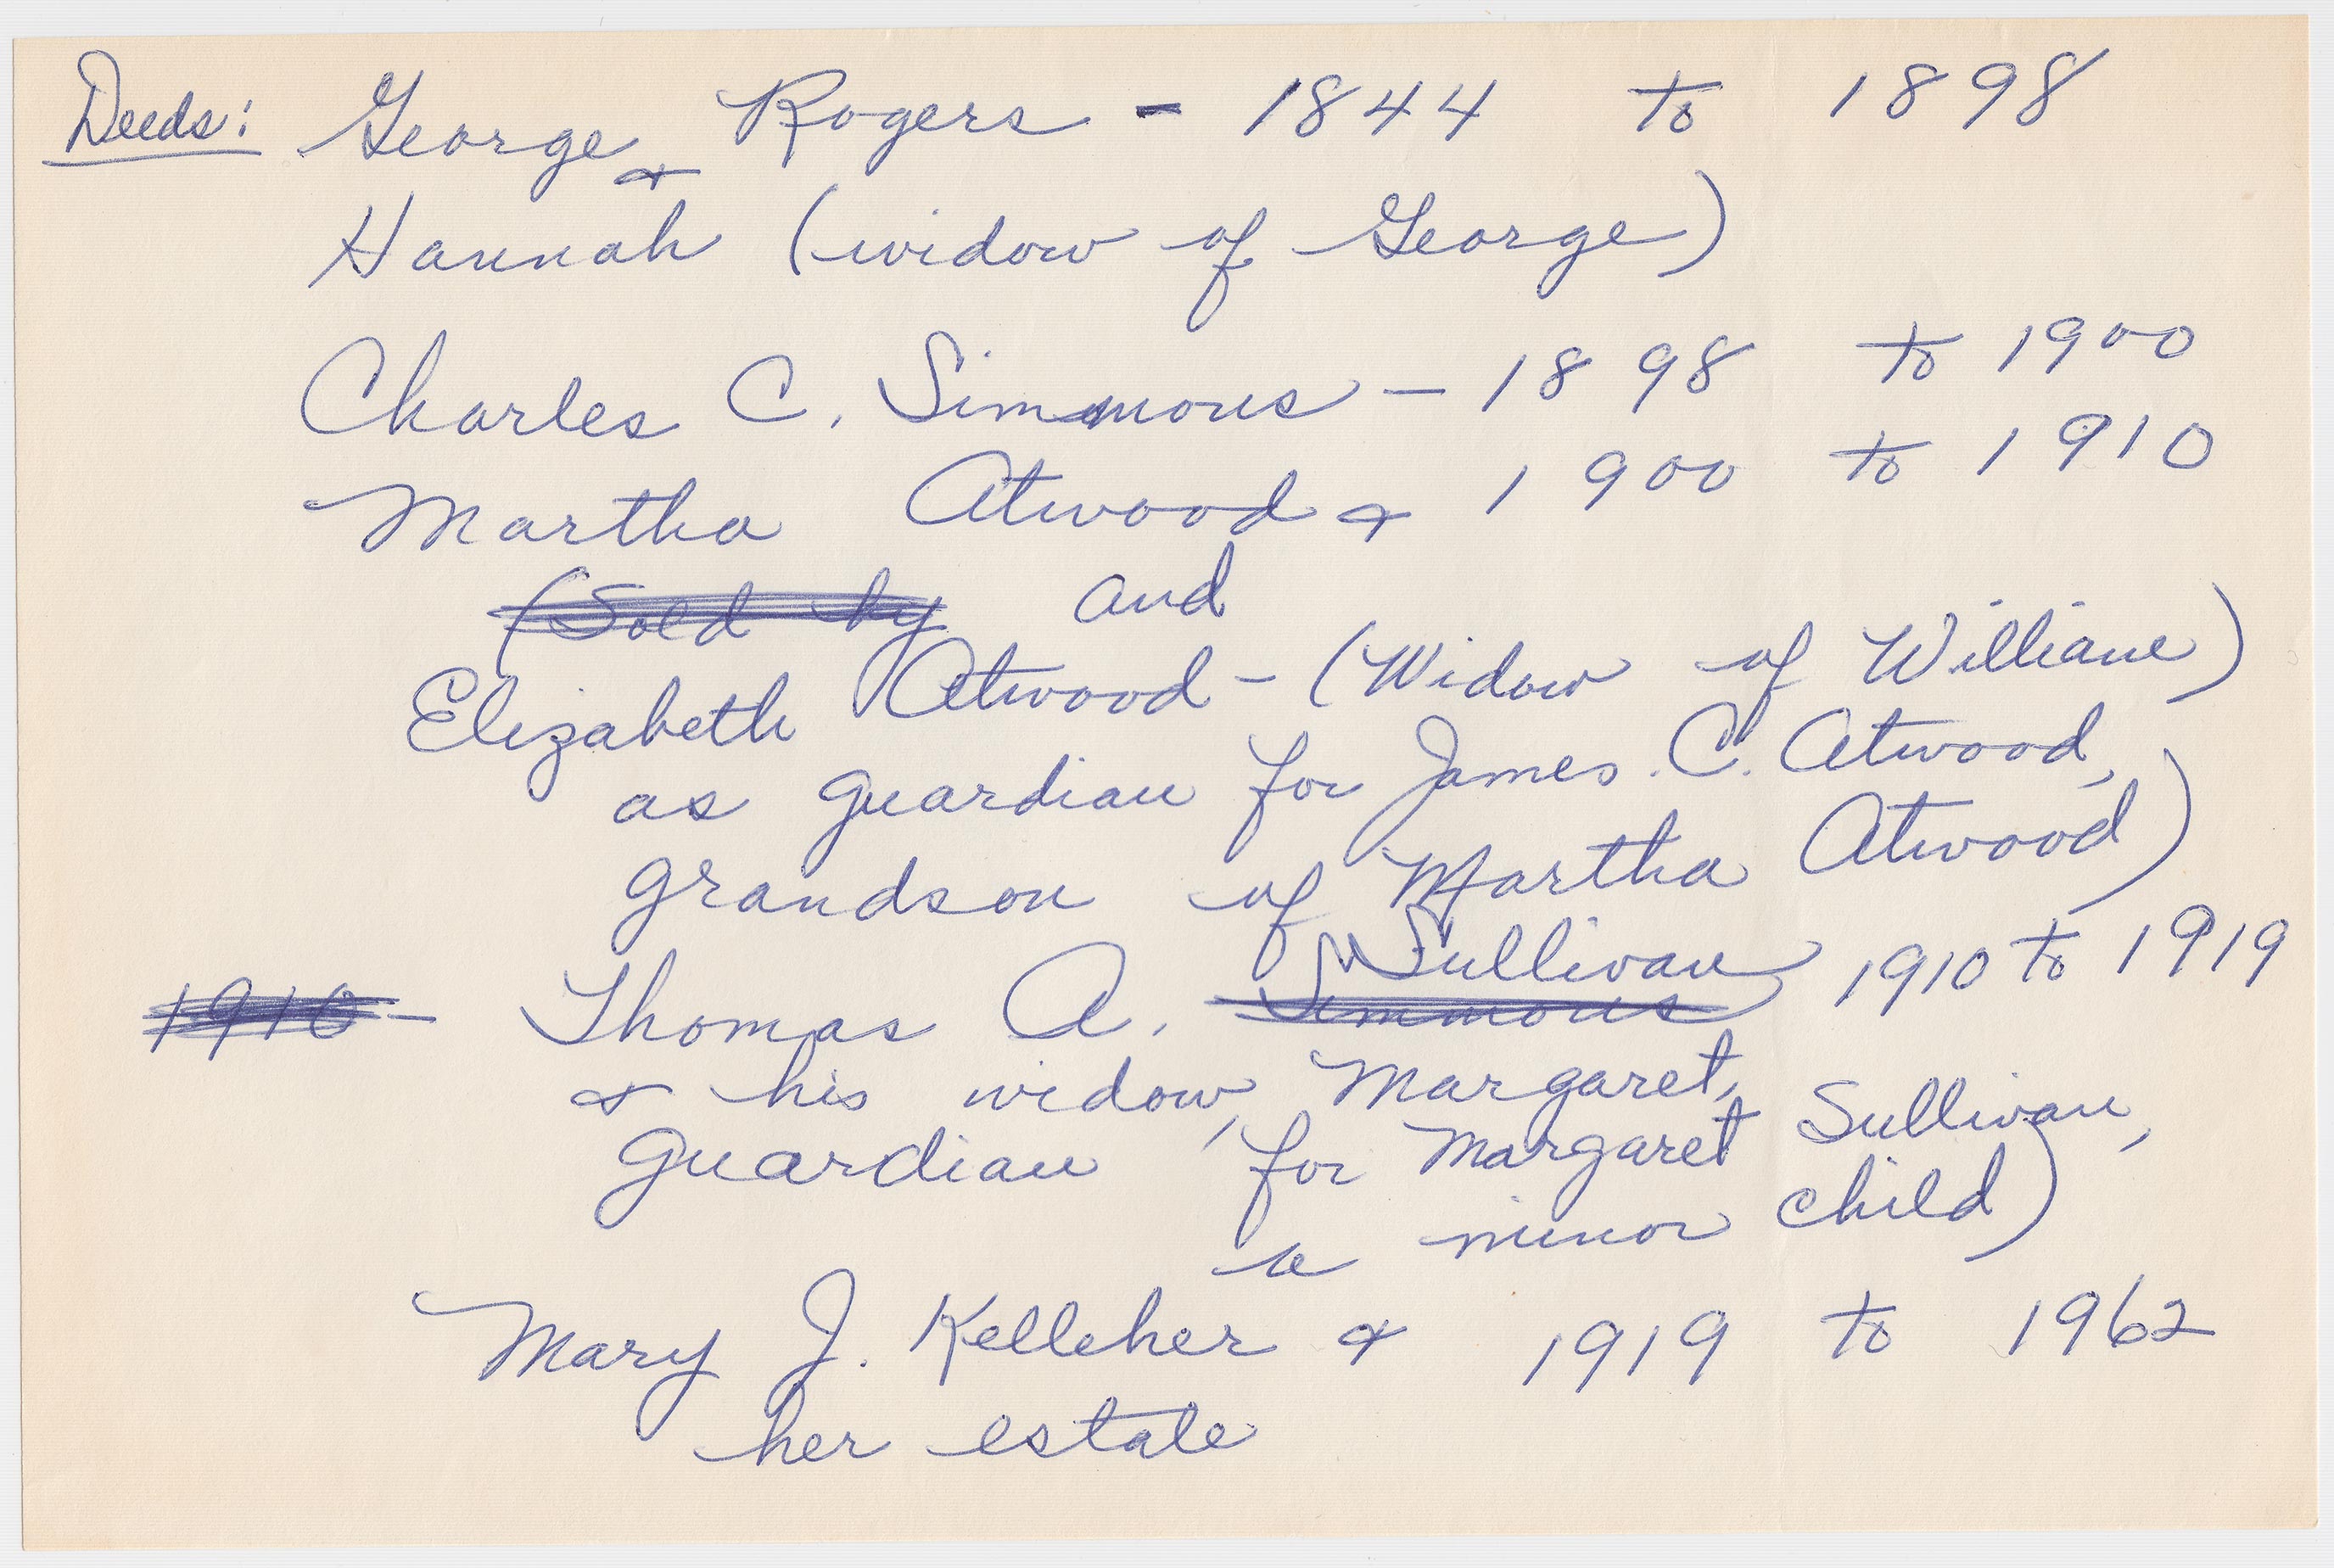 Deeds: George & Rogers - 1844 to 1898
Hannah (widow of George)
Charles C. Simmons - 1898 to 1900
Martha Atwood & 1900 to 1910
(Sold by and
Elizabeth Atwood - (Widow of William)
as guardian for James. C. Atwood,
grandson of Martha Atwood)
Sullivan
1910 - Thomas A. Simmons 1910 to 1919
& his widow, Margaret,
guardian for Margaret Sullivan,
a minor child)
Mary J. Kelleher & 1919 to 1962
her estate